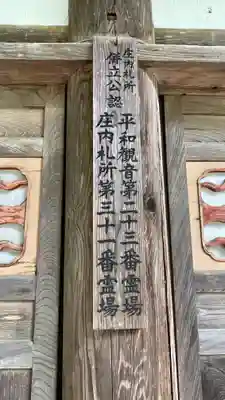 庄内札所
併立公認
平和観音第二十二番霊場
庄内札所第三十一番霊場